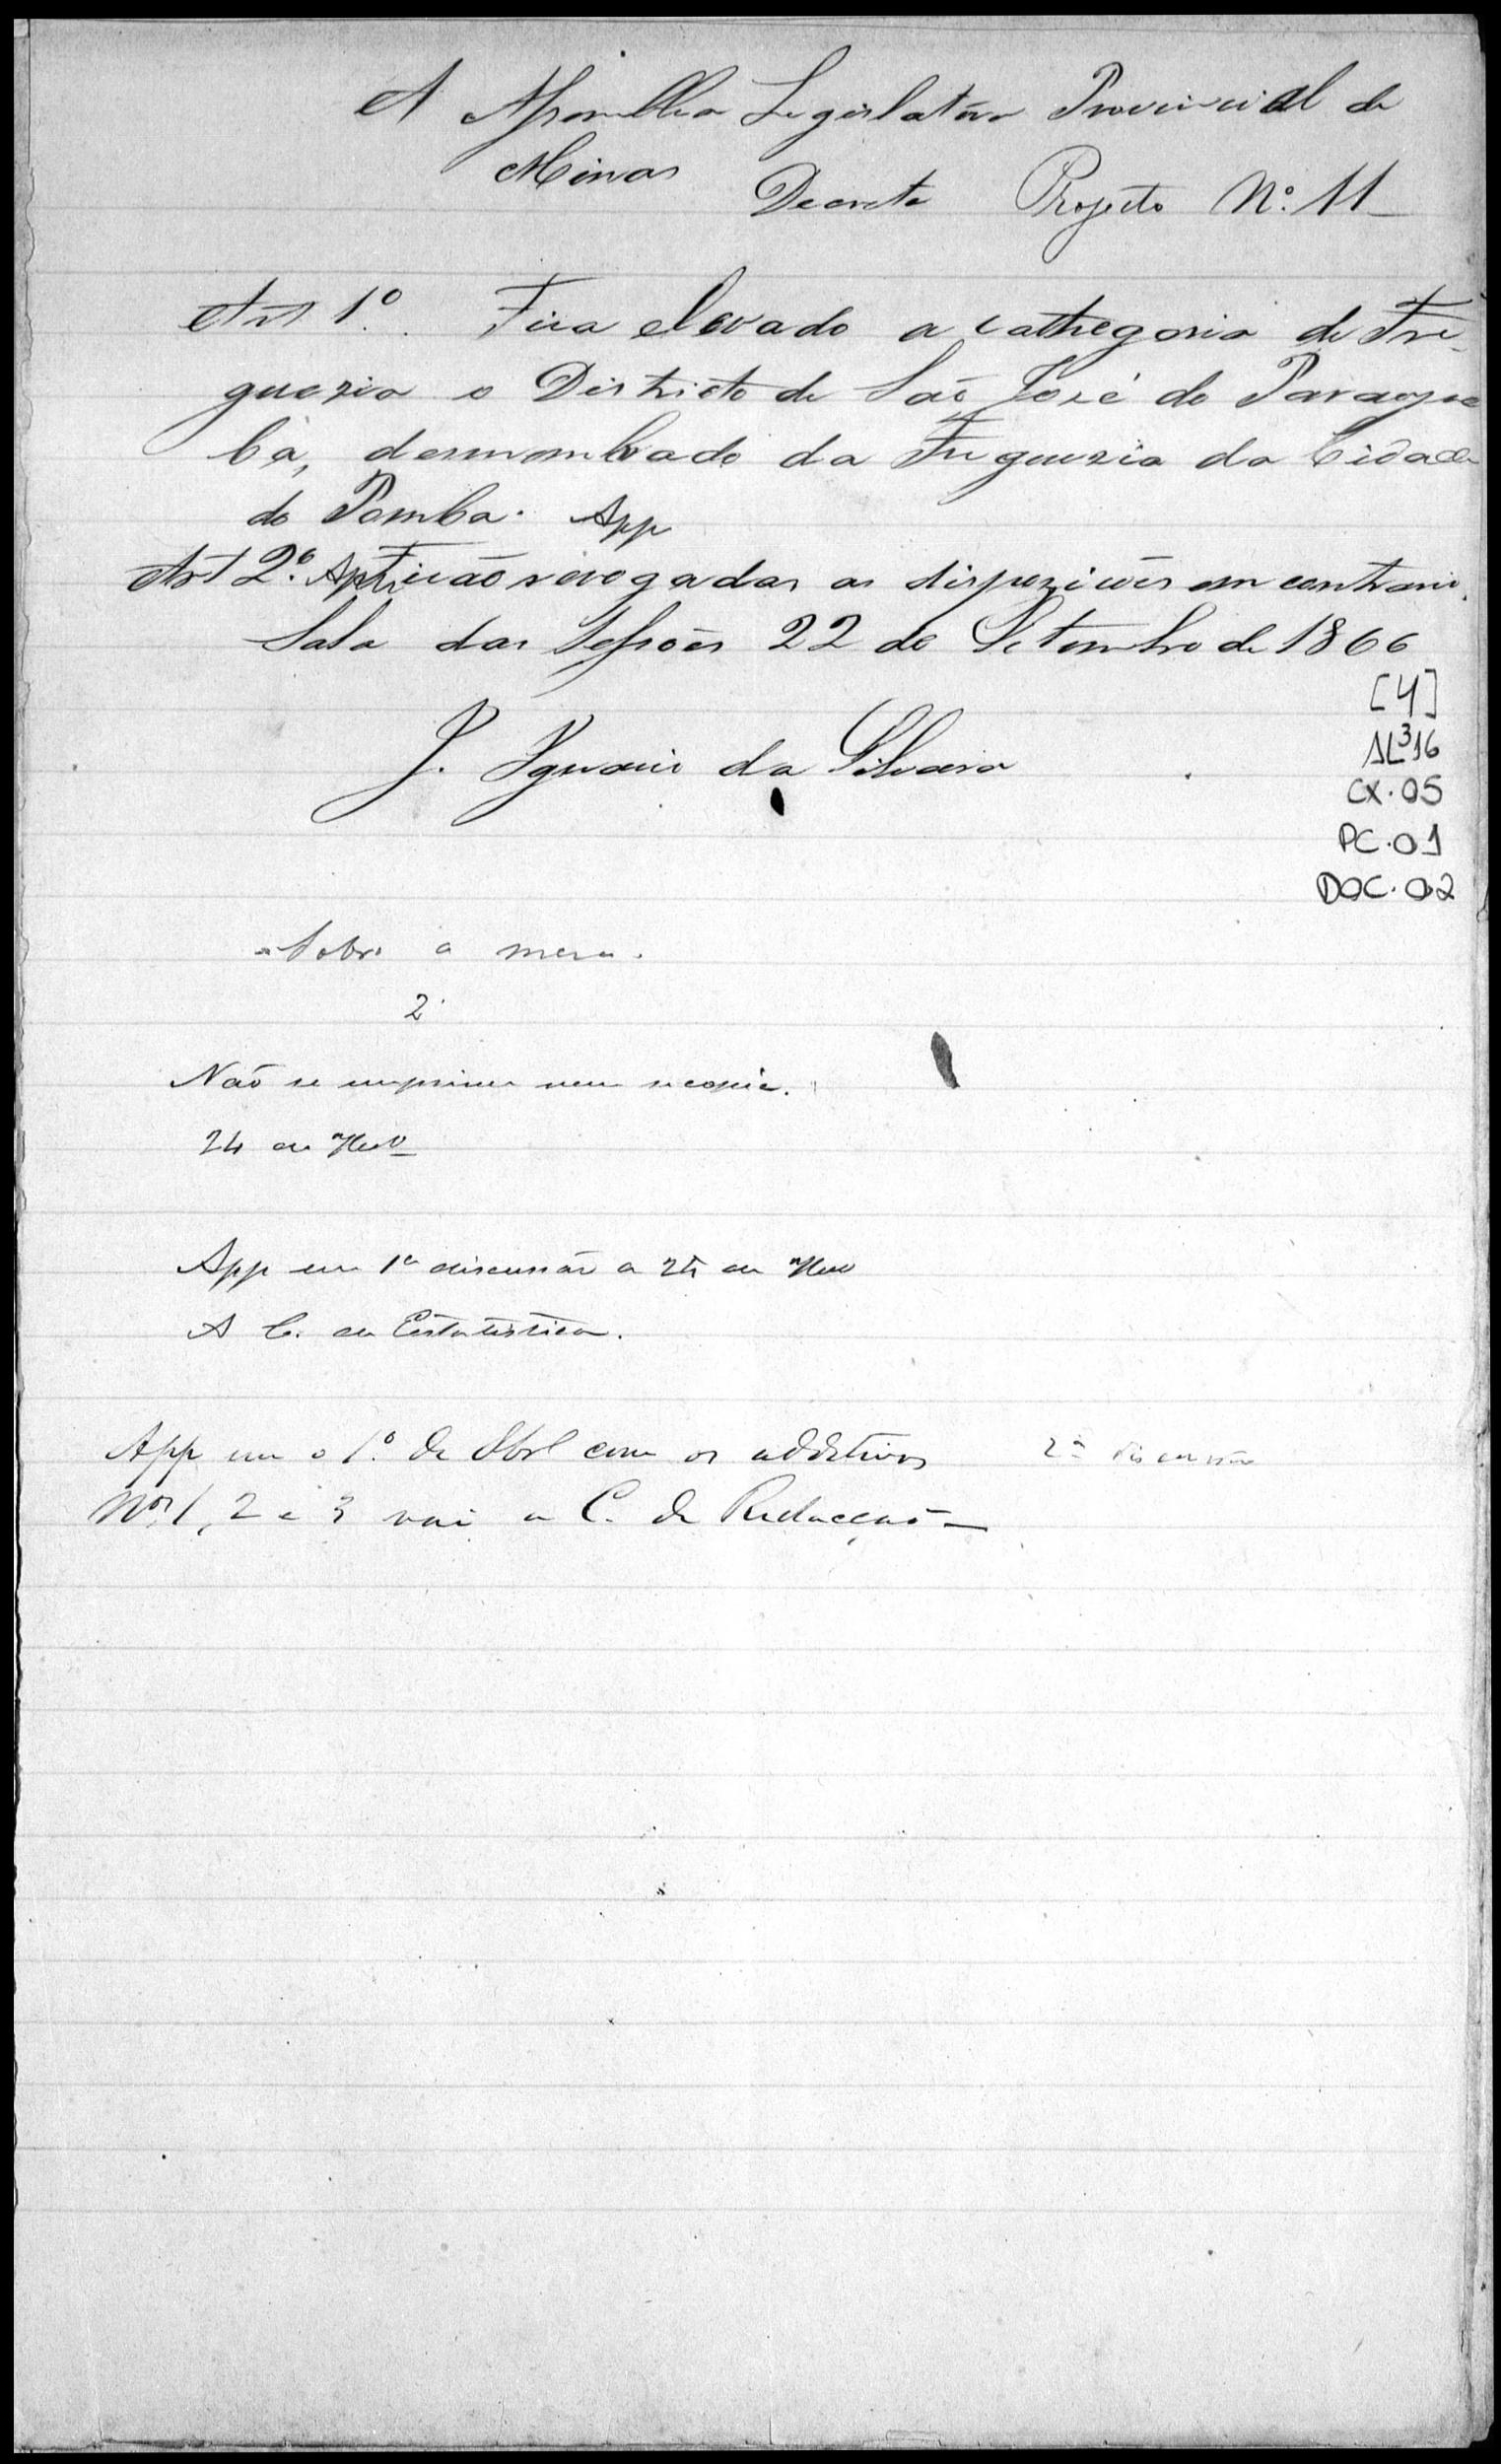 A Assemblea Legislativa Provincial de
Minas Decreta Projecto Nº. 11
Art 1º. Fica elevado a cathegoria de Fre-
guezia o Districto de São José do Paraope
ba, desmembrado da Freguezia da Cidade
do Pomba. App
Art 2º. App Ficão revogadas as dispozicões em contrario.
Sala das Sessões 22 de Setembro de 1866
J. Ignacio da Silveira
[4]
AL³16
CX.05
PC.01
DOC.02
Sobre a mesa.
2
Não se imprime nem se copia.
24 de 7bro
App em 1ª discussão a 25 de 7bro
A C. de Estatistica.
App em o 1º. de 8br com os additivos 2ª discussão
Nos 1, 2 e 3 vai a C. de Redacção